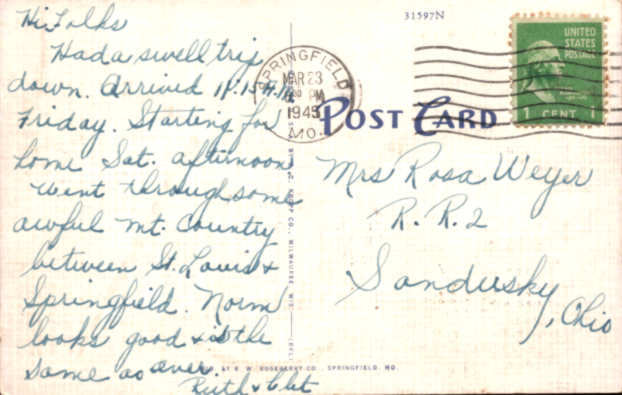 Hi Folks
Had a swell trip
down. Arrived 11:15 A.M.
Friday. Starting for
home Sat. afternoon
Went through some
awful Mt. Country
between St. Louis &
Springfield. Norm
looks good & is the
same as ever.
Ruth & Clet
31597N
SPRINGFIELD
MAR 23
PM
1945
MO.
UNITED
STATES
POSTAGE
1 CENT 1
POST CARD
Mrs Rosa Weyer
R.R.2
Sandusky
, Ohio
CO., MILWAUKEE, WIS.
BY R. W. ROSEBERRY CO., SPRINGFIELD, MO.